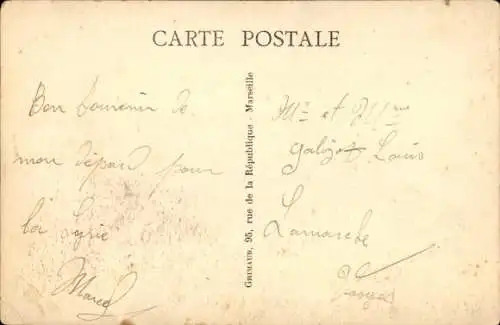 CARTE POSTALE
Bon Souvenir de
mon départ pour
la Syrie
Marcel
GRIMAUD, 95, rue de la République - Marseille
Mr et Mme
Louis
Lamarche
Vosges